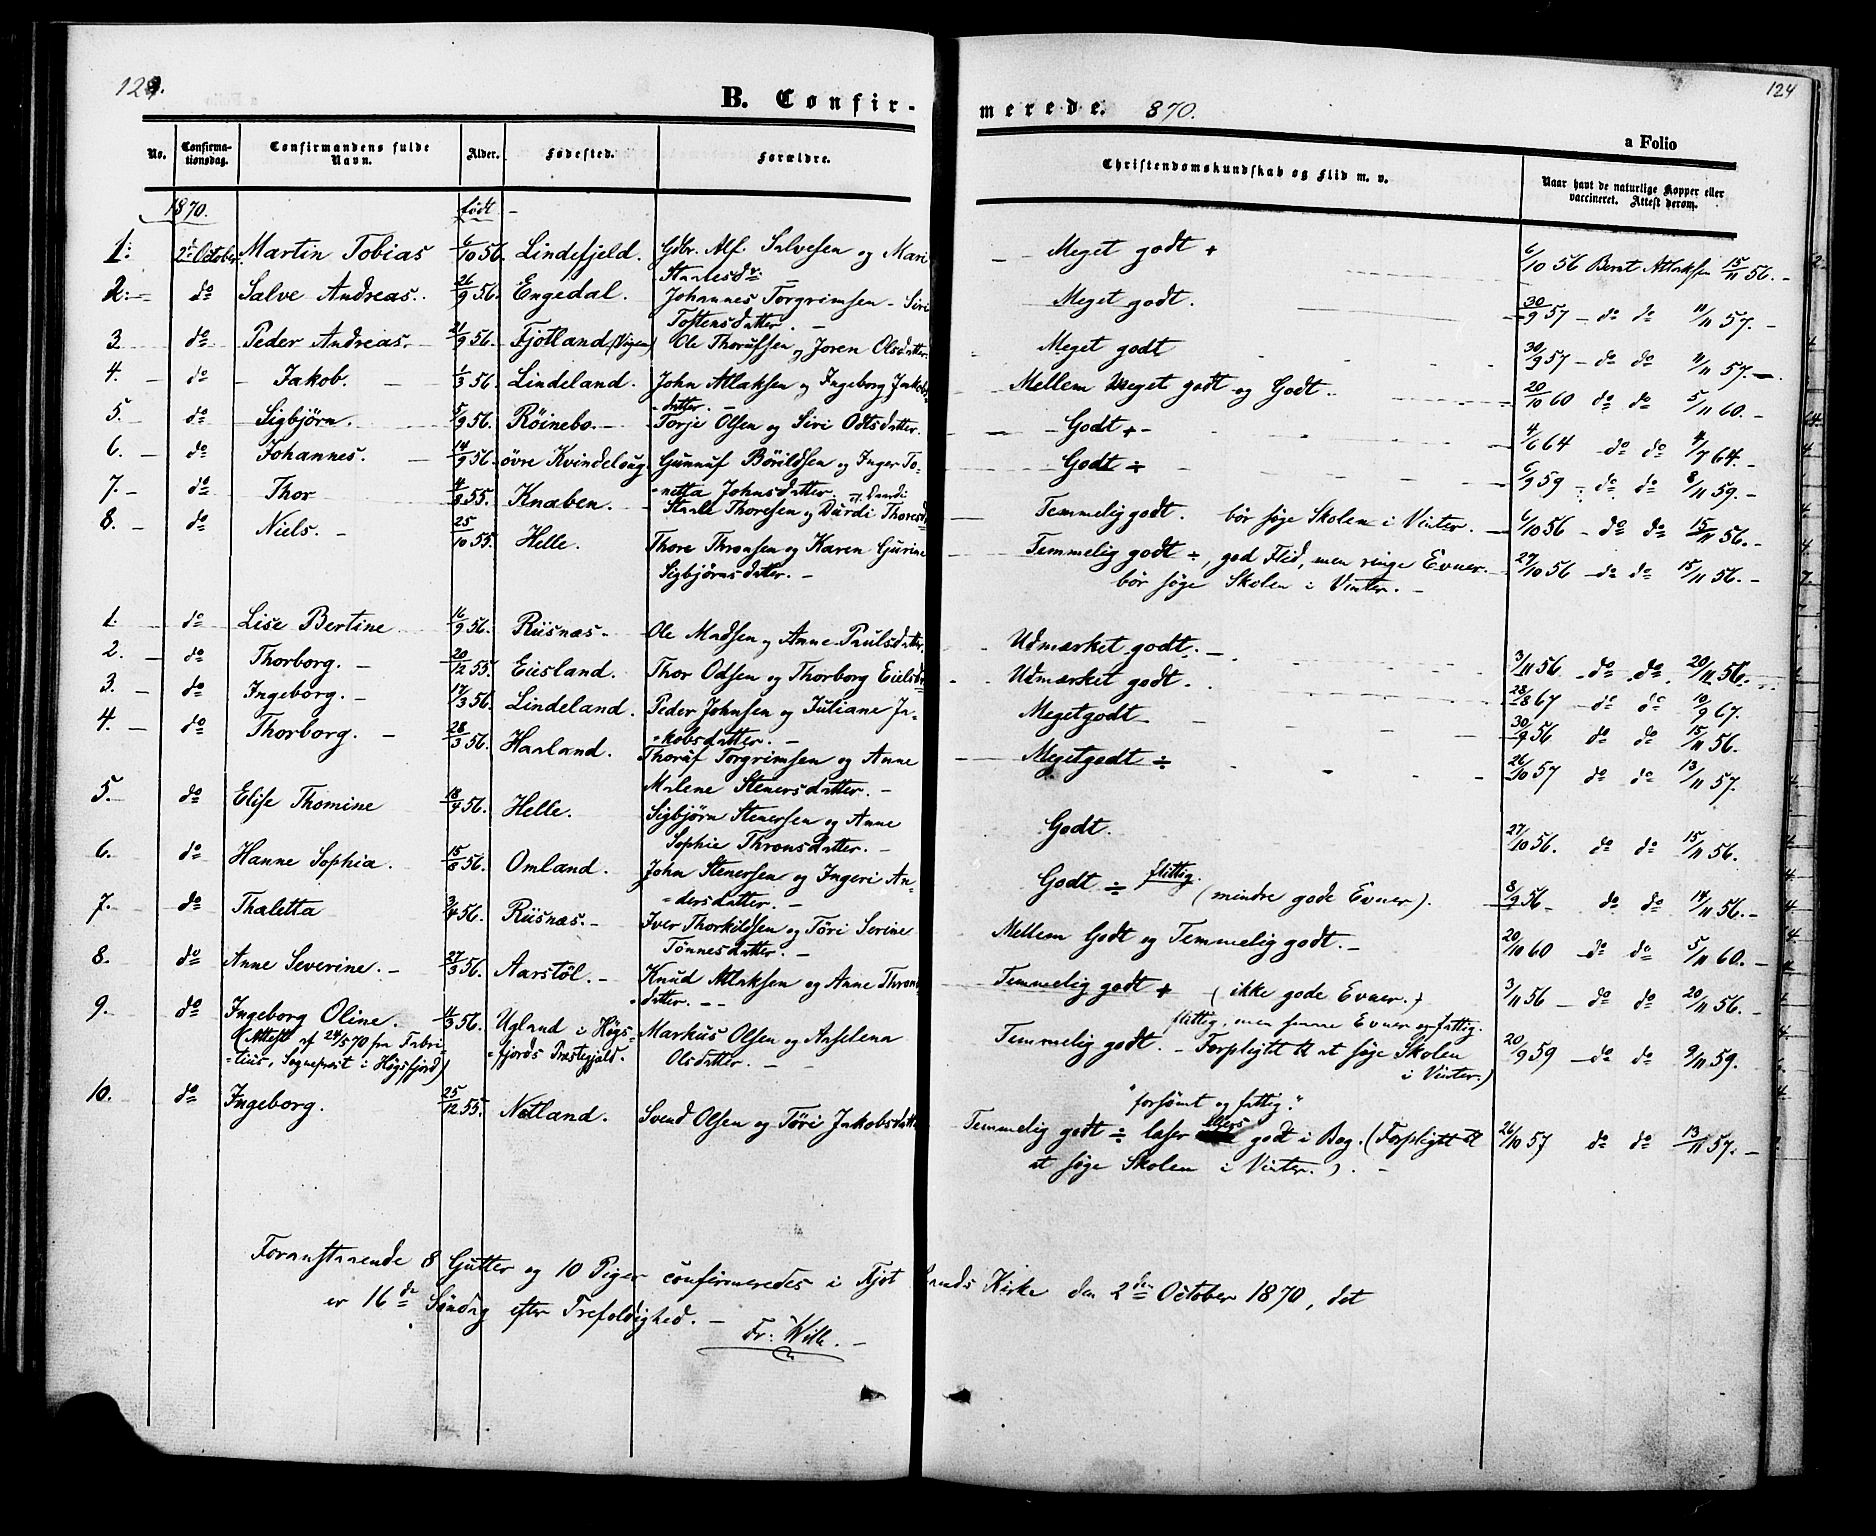 124
B. Confir-
merede. 870.
a Folio
No.
Confirma-
tionsdag.
Confirmandens fulde
Navn.
Alder.
Fødested.
Forældre.
Christendomskundskab og Flid m. v.
Naar havt de naturlige Kopper eller
vaccineret. Attest derom.
1870.
født
1. 2d October Martin Tobias 6/10 56. Lindefjeld. Gdbr. Alf. Salvesen og Mari Meget godt + 6/10 56 Bernt Atlaksen 15/11 56.
Staalesdr.
2. do Salve Andreas. 26/9 56. Engedal. Johannes Torgrimsen - Siri Meget godt. 30/9 57 - do do 11/11 57.
Tostensdatter.
3. do Peder Andreas. 21/9 56. Fjotland Ole Thorufsen og Joren Olsdatter. Meget godt 30/9 57 - do do 11/11 57.
4. do Jakob. 1/3 56. Lindeland. John Atlaksen og Ingeborg Jakobs- Mellem Meget godt og Godt. 20/10 60 do do 5/11 60.
datter.
5. do Sigbjörn. 5/9 56. Röinebo. Torje Olsen og Siri Odtsdatter. Godt + 4/6 64 do do 4/7 64.
6. do Johannes. 14/9 56. øvre Kvindelaug. Gunnuf Börildsen og Inger To- Godt ÷ 6/9 59 - do do 8/11 59.
netta Johnsdatter.
7. do Thor 4/8 55. Knaben. Staale Thoresen og Durdi Thoresd Temmelig godt. bör søge Skolen i Vinter. 6/10 56 - do do 15/11 56.
8. do Niels. 25/10 55. Helle. Thore Thronsen og Karen Gurine Temmelig godt ÷, god Flid, men ringe Evner. 27/10 56 - do do 15/11 56.
Sigbjörnsdatter. bör söge Skolen i Vinter.
1. do Lise Bertine 16/9 56. Risnæs. Ole Madsen og Anne Paulsdatter Udmærket godt. 3/11 56 do do 20/11 56.
2. do Thorborg. 20/12 55. Eiesland. Thor Odsen og Thorborg Eielsdr Udmærket godt. 28/8 67 do do 10/9 67.
3. do Ingeborg. 17/3 56. Lindeland. Peder Johnsen og Juliane Ja- Meget godt 30/9 56 do do 15/11 56.
kobsdatter.
4. do Thorborg. 28/3 56. Haaland. Thoruf Torgrimsen og Anne Meget godt ÷ 26/10 57 do do 13/11 57.
Malene Stenersdatter.
5. do Elise Thomine 18/9 56. Helle. Sigbjörn Stenersen og Anne Godt. 27/10 56. do do 15/11 56.
Sophie Thronsdatter.
6. do Hanne Sophia. 15/8 56. Omland. John Stenersen og Ingeri An- Godt ÷ flittig. (mindre gode Evner). 8/9 56 - do do 14/11 56.
dersdatter.
7. do Thaletta 3/4 56. Risnæs. Iver Thorkildsen og Töri Serine Mellem Godt og Temmelig godt. 20/10 60 do do 5/11 60.
Tönnesdatter.
8. do Anne Severine. 27/3 56. Aarstöl. Knud Atlaksen og Anne Throns- Temmelig godt + (ikke gode Evner.) 3/11 56 - do do 20/11 56.
datter.
9. do Ingeborg Oline. 4/3 56. Ugland i Högs- Markus Olsen og Aaselena flittig, men svage Evner og fattig.
(Attest af 24/5 70 fra Fabri- fjords Præstegjeld. Olsdatter. Temmelig godt. - Forpligtet til at søge Skolen 20/9 59 - do do 9/11 59.
tius, Sognepræst i Högsfjord) i Vinter.)
10. do Ingeborg. 25/12 55. Netland. Svend Olsen og Töri Jakobsdatter "forsömt og fattig."
Temmelig godt ÷ læser ellers godt i Bog. (Forpligtet til 26/10 57 do do 13/11 57.
at søge Skolen i Vinter.)
Foranstaaende 8 Gutter og 10 Piger confirmeredes i Fjotlands Kirke den 2den October 1870, det
er 16de Söndag efter Trefoldighed.
Fr: Wille.